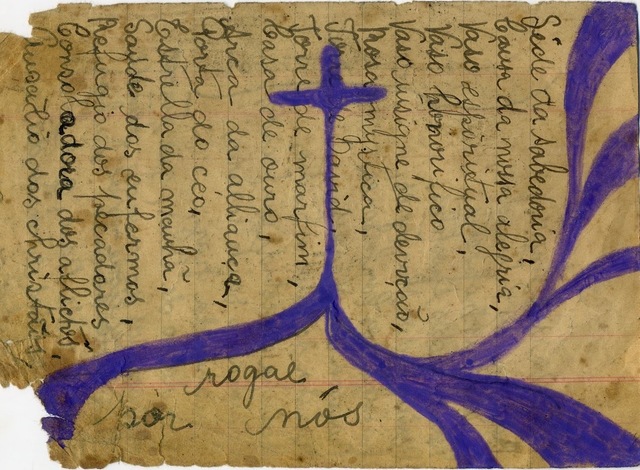 Séde da sabedoria,
Causa da nossa alegria,
Vaso espiritual,
Vaso honorifico
Vaso insigne de devoção,
Rosa mistica,
Torre de David,
Torre de marfim,
Casa de ouro,
Arca da alliança,
Porta do céo,
Estrella da manhã,
Saude dos enfermos,
Refugio dos pecadores
Consoladora dos afflictos,
Auxilio dos christãos,
rogae
por nós